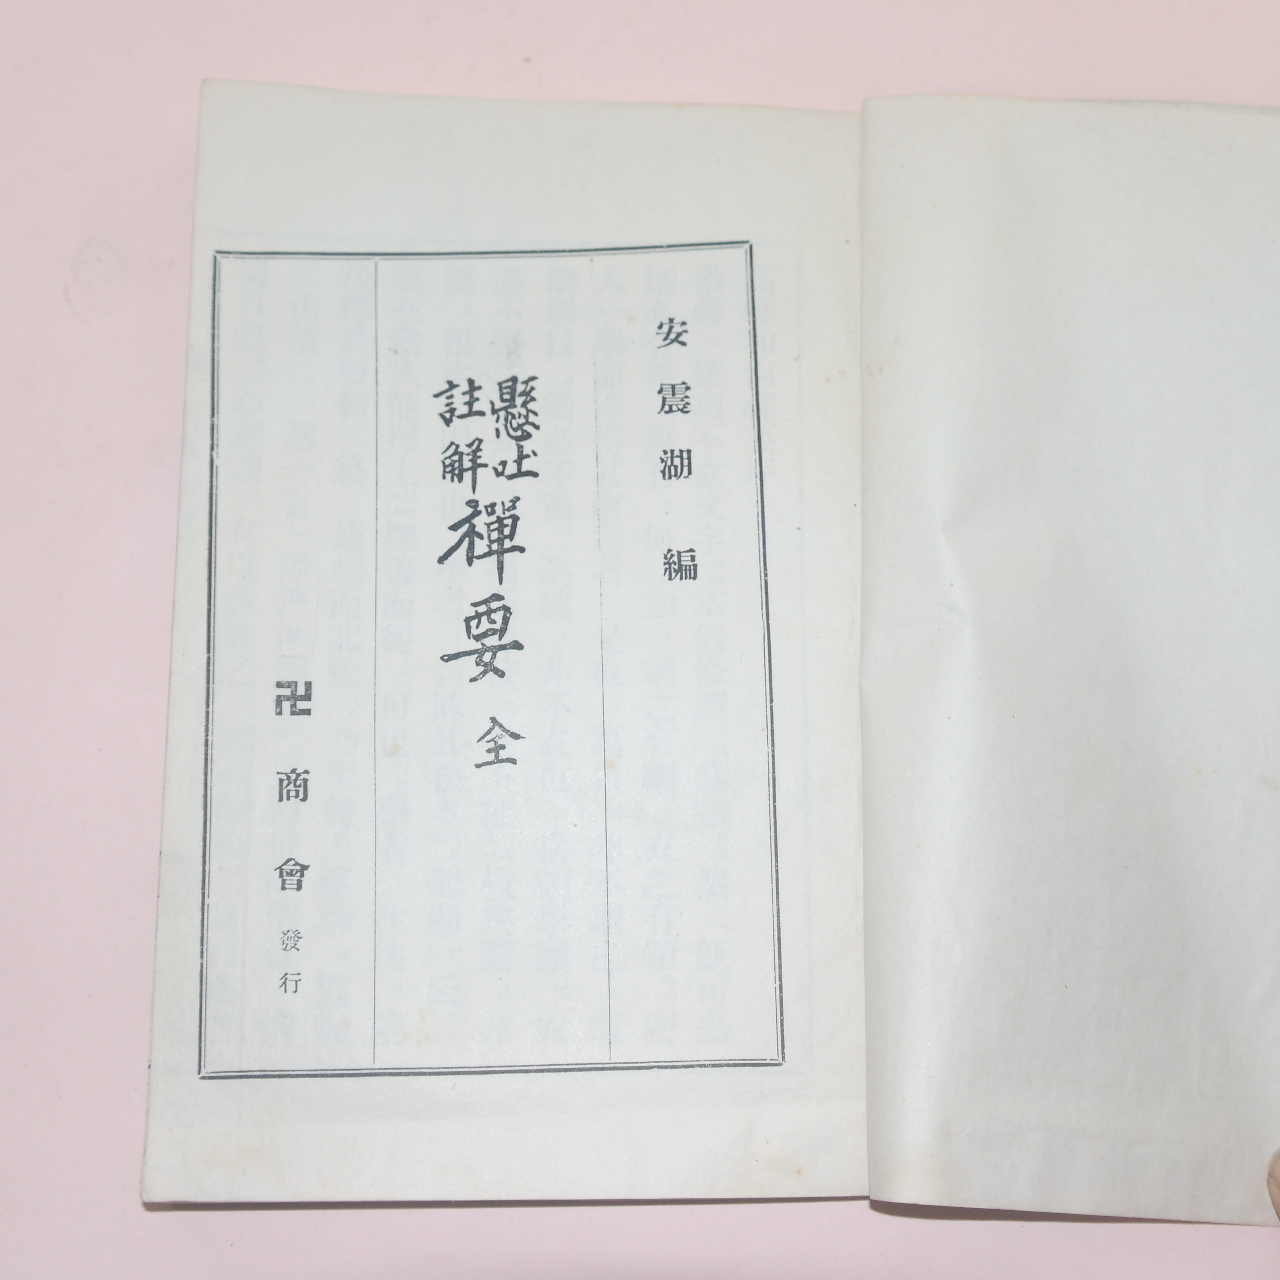 安震湖編
懸吐
註解
禪要 全
卍商會發行